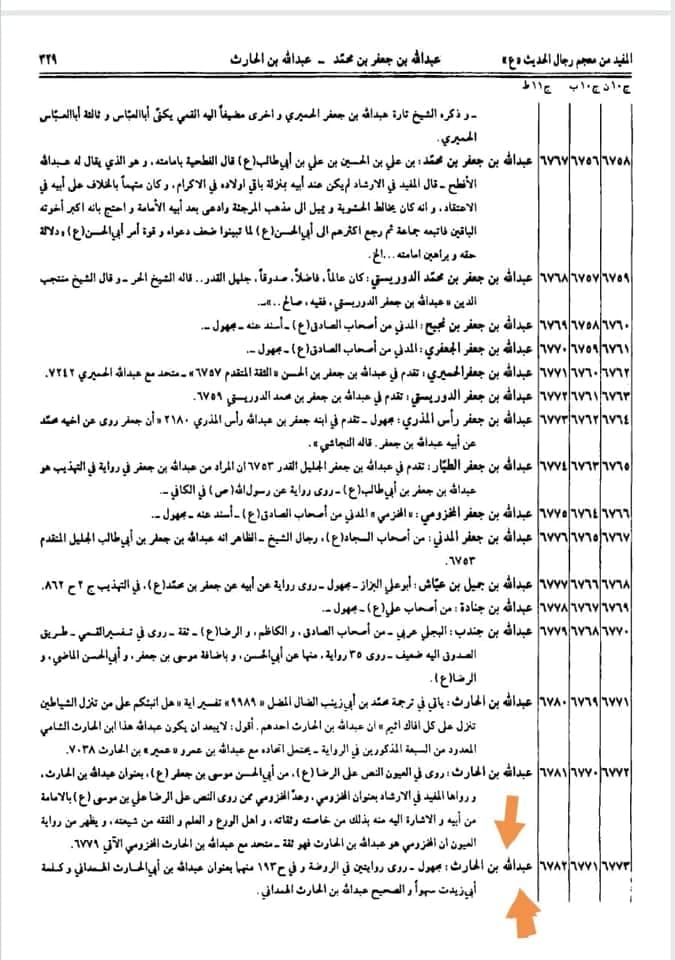 المفيد من معجم رجال الحديث «ع»
عبدالله بن جعفر بن محمّد ــ عبدالله بن الحارث
٣٢٩
ج١٠ن ج١٠ب ج١١ط
ــ و ذكره الشيخ تارة عبدالله بن جعفر الحميري و اخرى مضيفاً اليه القمي يكنّى أباالعبّاس و ثالثة أباالعبّاس
الحميري.
٦٧٥٨ ٦٧٥٦ ٦٧٦٧ عبدالله بن جعفر بن محمّد: بن علي بن الحسين بن علي بن أبي‌طالب(ع) قال الفطحية بامامته، و هو الذي يقال له عبدالله
الأفطح ــ قال المفيد في الارشاد لم‌يكن عند أبيه بمنزلة باقي اولاده في الاكرام، و كان متهماً بالخلاف على أبيه في
الاعتقاد، و انه كان يخالط الحشوية و يميل الى مذهب المرجئة وادعى بعد أبيه الأمامة و احتج بانه اكبر أخوته
الباقين فاتبعه جماعة ثم رجع اكثرهم الى أبي‌الحسن(ع) لما تبينوا ضعف دعواه و قوة أمر أبي‌الحسن(ع) ودلالة
حقه و براهين امامته...الخ.
٦٧٥٩ ٦٧٥٧ ٦٧٦٨ عبدالله بن جعفر بن محمّد الدوريستي: كان عالماً، فاضلاً، صدوقاً، جليل القدر.. قاله الشيخ الحر ــ و قال الشيخ منتجب
الدين «عبدالله بن جعفر الدوريستي، فقيه، صالح..»ــ.
٦٧٦٠ ٦٧٥٨ ٦٧٦٩ عبدالله بن جعفر بن نجيح: المدني من أصحاب الصادق(ع) ــ أسند عنه ــ مجهول ــ.
٦٧٦١ ٦٧٥٩ ٦٧٧٠ عبدالله بن جعفر الجعفري: المدني من أصحاب الصادق(ع) ــ مجهول ــ.
٦٧٦٢ ٦٧٦٠ ٦٧٧١ عبدالله بن جعفرالحميري: تقدم في عبدالله بن جعفر بن الحسن «الثقة المتقدم ٦٧٥٧» ــ متحد مع عبدالله الحميري ٧٢٤٢.
٦٧٦٣ ٦٧٦١ ٦٧٧٢ عبدالله بن جعفر الدوريستي: تقدم في عبدالله بن جعفر بن محمد الدوريستي ٦٧٥٩.
٦٧٦٤ ٦٧٦٢ ٦٧٧٣ عبدالله بن جعفر رأس المذري: مجهول ــ تقدم في ابنه جعفر بن عبدالله رأس المذري ٢١٨٠ «أن جعفر روى عن اخيه محمّد
عن أبيه عبدالله بن جعفر. قاله النجاشي».
٦٧٦٥ ٦٧٦٣ ٦٧٧٤ عبدالله بن جعفر الطيّار: تقدم في عبدالله بن جعفر الجليل القدر ٦٧٥٣ ان المراد من عبدالله بن جعفر في رواية في التهذيب هو
عبدالله بن جعفر بن أبي‌طالب(ع) ــ روى رواية عن رسول‌الله(ص) في الكافي ــ.
٦٧٦٦ ٦٧٦٤ ٦٧٧٥ عبدالله بن جعفر المخزومي: «المخرمي» المدني من أصحاب الصادق(ع) ــ أسند عنه ــ مجهول ــ.
٦٧٦٧ ٦٧٦٥ ٦٧٧٦ عبدالله بن جعفر المدني: من أصحاب السجاد(ع)، رجال الشيخ ــ الظاهر انه عبدالله بن جعفر بن أبي‌طالب الجليل المتقدم
٦٧٥٣.
٦٧٦٨ ٦٧٦٦ ٦٧٧٧ عبدالله بن جميل بن عيّاش: أبوعلي البزاز ــ مجهول ــ روى رواية عن أبيه عن جعفر بن محمّد(ع)، في التهذيب ج ٢ ح ٨٦٢.
٦٧٦٩ ٦٧٦٧ ٦٧٧٨ عبدالله بن جنادة: من أصحاب علي(ع) ــ مجهول ــ.
٦٧٧٠ ٦٧٦٨ ٦٧٧٩ عبدالله بن جندب: البجلي عربي ــ من أصحاب الصادق، و الكاظم، و الرضا(ع) ــ ثقة ــ روى في تفسيرالقمي ــ طريق
الصدوق اليه ضعيف ــ روى ٣٥ رواية، منها عن أبي‌الحسن، و باضافة موسى بن جعفر، و أبي‌الحسن الماضي، و
الرضا(ع).
٦٧٧١ ٦٧٦٩ ٦٧٨٠ عبدالله بن الحارث: ياتي في ترجمة محمّد بن أبي‌زينب الضال المضل «٩٩٨٩» تفسير اية «هل انبئكم على من تنزل الشياطين
تنزل على كل افاك اثيم» ان عبدالله بن الحارث احدهم. أقول: لايبعد ان يكون عبدالله هذا ابن الحارث الشامي
المعدود من السبعة المذكورين في الرواية ــ يحتمل اتحاده مع عبدالله بن عمرو «عمير» بن الحارث ٧٠٣٨.
٦٧٧٢ ٦٧٧٠ ٦٧٨١ عبدالله بن الحارث: روى في العيون النص على الرضا(ع)، من أبي‌الحسن موسى بن جعفر(ع)، بعنوان عبدالله بن الحارث،
و رواها المفيد في الارشاد بعنوان المخزومي، وعدّ المخزومي ممن روى النص على الرضا علي بن موسى(ع) بالامامة
من أبيه و الاشارة اليه منه بذلك من خاصته وثقاته، و اهل الورع و العلم و الفقه من شيعته، و يظهر من رواية
العيون ان المخزومي هو عبدالله بن الحارث فهو ثقة ــ متحد مع عبدالله بن الحارث المخزومي الآتي ٦٧٧٩.
٦٧٧٣ ٦٧٧١ ٦٧٨٢ عبدالله بن الحارث: مجهول ــ روى روايتين في الروضة و في ح١٩٣ منهما بعنوان عبدالله بن أبي‌الحارث الهمداني و كلمة
أبي‌زيدت سهواً و الصحيح عبدالله بن الحارث الهمداني.